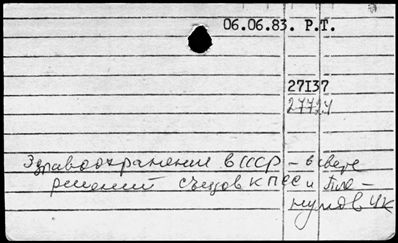 06.06.83. Р.Т.
27137
27724
Здравоохранение в СССР – в свете
решений съездов КПСС и Пле-
нумов ЦК